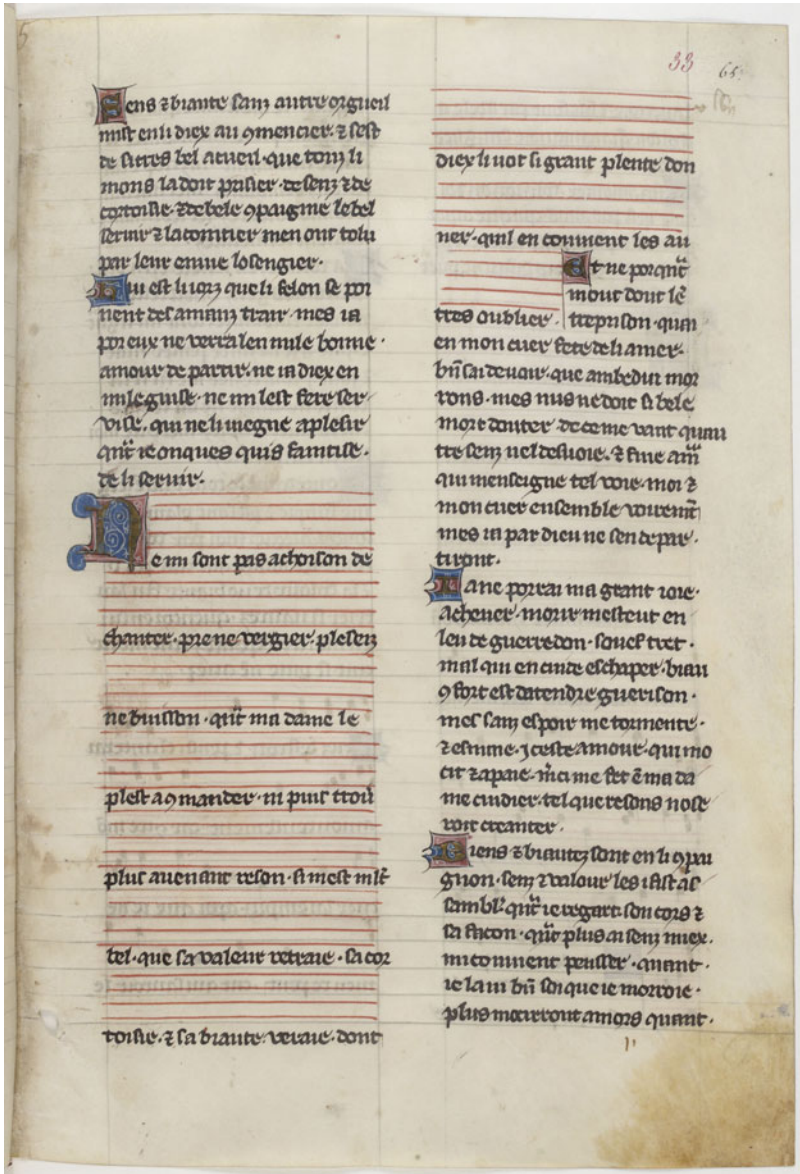 33 65
Sens ⁊ biaute sanz autre orgueil
mist en li diex au ꝯmencier. ⁊ sest
de si tres bel acueil. que touz li
mons la doit prisier. de senz ⁊ de
cortoisie. ⁊ de bele ꝯpaignie le bel
seruir ⁊ lacointier men ont tolu
par leur enuie losengier.
Qui est li iorz que li felon se por
nent des amanz trair. mes ia
por eux ne uerra len nule bonne.
amour de partir. ne ia diex en
nule guise. ne mi lest fere ser
uise. qui ne li uiegne a plesir
qnt ie onques quis faintise.
de li seruir.
Ne mi sont pas achoison de
chanter. pre ne uergier. plesenz
ne buisson. qnt ma dame le
plest a ꝯmander. ni puis trou
plus auenant reson. si mest mlt
bel. que sa valeur retraie. sa cor
toisie. ⁊ sa biaute. veraie. dont
diex li uot si grant plente don
ner. quil en conuient les au
tres oublier.
Et ne porqnt
mout dout le
treprison. quan
en mon cuer fete de li amer.
bn sai de uoir. que ambedui mor
rons. mes nus ne doit si bele
mort douter. de ce me uant quau
tre senz uel desuoie. ⁊ fine am
qui menseigne tel voie. moi ⁊
mon cuer ensemble voiremt
mes ia par dieu ne sen depar.
tiront.
Ia ne porrai ma grant ioie.
acheuer. morir mesteut en
leu de guerredon. souef tret.
mal qui en cuide eschaper. biau
ꝯfort est datendre guerison.
mes sanz espoir me tormente.
⁊ esmaie. ⁊ ceste amour. qui mo
cit ⁊ apaie. mci me fet e ma da
me cuidier. tel que resons nose
roit creanter.
Biens ⁊ biautez sont en li ꝯpai
gnon. senz ⁊ valour les i fist as
sambl. qnt ie regart. son cors ⁊
sa facon. qnt plus ai senz miex.
mi conuient pensser. quant.
ie la ui bn soi que ie morroie.
plus morront amors quant.